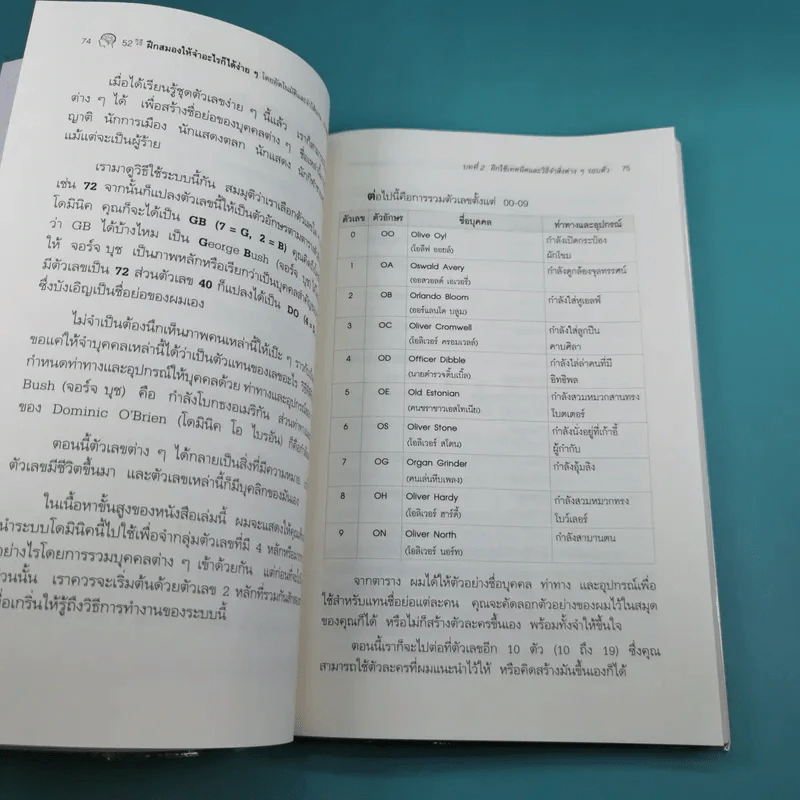 74 52 วิธี ฝึกสมองให้จำอะไรก็ได้ง่าย ๆ
เมื่อได้เรียนรู้ชุดตัวเลขง่าย ๆ นี้แล้ว
ต่าง ๆ ได้ เพื่อสร้างชื่อย่อของบุคคลต่าง ๆ
ญาติ นักการเมือง นักแสดงตลก นักแสดง
แม้แต่จะเป็นผู้ร้าย
เรามาดูวิธีใช้ระบบนี้กัน สมมุติว่าเราเลือกตัวเลข
เช่น 72 จากนั้นก็แปลงตัวเลขนี้ให้เป็นตัวอักษรตามตาราง
โดมินิค คุณก็จะได้เป็น GB (7 = G, 2 = B)
ว่า GB ได้บ้างไหม เป็น George Bush (จอร์จ บุช)
ให้ จอร์จ บุช เป็นภาพหลักหรือเรียกว่าเป็นบุคคลสำคัญ
มีตัวเลขเป็น 72 ส่วนตัวเลข 40 ก็แปลงได้เป็น DO (4 =
ซึ่งบังเอิญเป็นชื่อย่อของผมเอง
ไม่จำเป็นต้องนึกเห็นภาพคนเหล่านี้ให้เป๊ะ ๆ
ขอแค่ให้จำบุคคลเหล่านี้ได้ว่าเป็นตัวแทนของเลขอะไร
กำหนดท่าทางและอุปกรณ์ให้บุคคลด้วย ท่าทางและอุปกรณ์
Bush (จอร์จ บุช) คือ กำลังโบกธงอเมริกัน ส่วนท่าทาง
ของ Dominic O'Brien (โดมินิค โอ ไบรอัน)
ตอนนี้ตัวเลขต่าง ๆ ได้กลายเป็นสิ่งที่มีความหมาย
ตัวเลขมีชีวิตขึ้นมา และตัวเลขเหล่านี้ก็มีบุคลิกของมันเอง
ในเนื้อหาขั้นสูงของหนังสือเล่มนี้ ผมจะแสดงให้คุณ
นำระบบโดมินิคนี้ไปใช้เพื่อจำกลุ่มตัวเลขที่มี 4 หลัก
อย่างไรโดยการรวมบุคคลต่าง ๆ เข้าด้วยกัน
เราควรจะเริ่มต้นด้วยตัวเลข 2 หลักที่รวมกัน
เพื่อเกริ่นให้รู้ถึงวิธีการทำงานของระบบนี้
บทที่ 2 ฝึกใช้เทคนิคและวิธีจำสิ่งต่าง ๆ รอบตัว 75
ต่อไปนี้คือการรวมตัวเลขตั้งแต่ 00-09
ตัวเลข ตัวอักษร ชื่อบุคคล ท่าทางและอุปกรณ์
0 OO Olive Oyl กำลังเปิดกระป๋อง
(โอลีฟ ออยล์) ผักโขม
1 OA Oswald Avery กำลังดูกล้องจุลทรรศน์
(ออสวอลด์ เอเวอรี่)
2 OB Orlando Bloom กำลังใส่หูเอลฟ์
(ออร์แลนโด บลูม)
3 OC Oliver Cromwell กำลังใส่ลูกปืน
(โอลิเวอร์ ครอมเวลล์) คาบศิลา
4 OD Officer Dibble กำลังไล่ล่าคนที่มี
(นายตำรวจดิบเบิ้ล) อิทธิพล
5 OE Old Estonian กำลังสวมหมวกสานทรง
(คนชราชาวเอสโทเนีย) โบตเตอร์
6 OS Oliver Stone กำลังนั่งอยู่ที่เก้าอี้
(โอลิเวอร์ สโตน) ผู้กำกับ
7 OG Organ Grinder กำลังอุ้มลิง
(คนเล่นหีบเพลง)
8 OH Oliver Hardy กำลังสวมหมวกทรง
(โอลิเวอร์ ฮาร์ดี้) โบว์เลอร์
9 ON Oliver North กำลังสาบานตน
(โอลิเวอร์ นอร์ท)
จากตาราง ผมได้ให้ตัวอย่างชื่อบุคคล ท่าทาง และอุปกรณ์เพื่อ
ใช้สำหรับแทนชื่อย่อแต่ละคน คุณจะคัดลอกตัวอย่างของผมไว้ในสมุด
ของคุณก็ได้ หรือไม่ก็สร้างตัวละครขึ้นเอง พร้อมทั้งจำให้ขึ้นใจ
ตอนนี้เราก็จะไปต่อที่ตัวเลขอีก 10 ตัว (10 ถึง 19) ซึ่งคุณ
สามารถใช้ตัวละครที่ผมแนะนำไว้ให้ หรือคิดสร้างมันขึ้นเองก็ได้